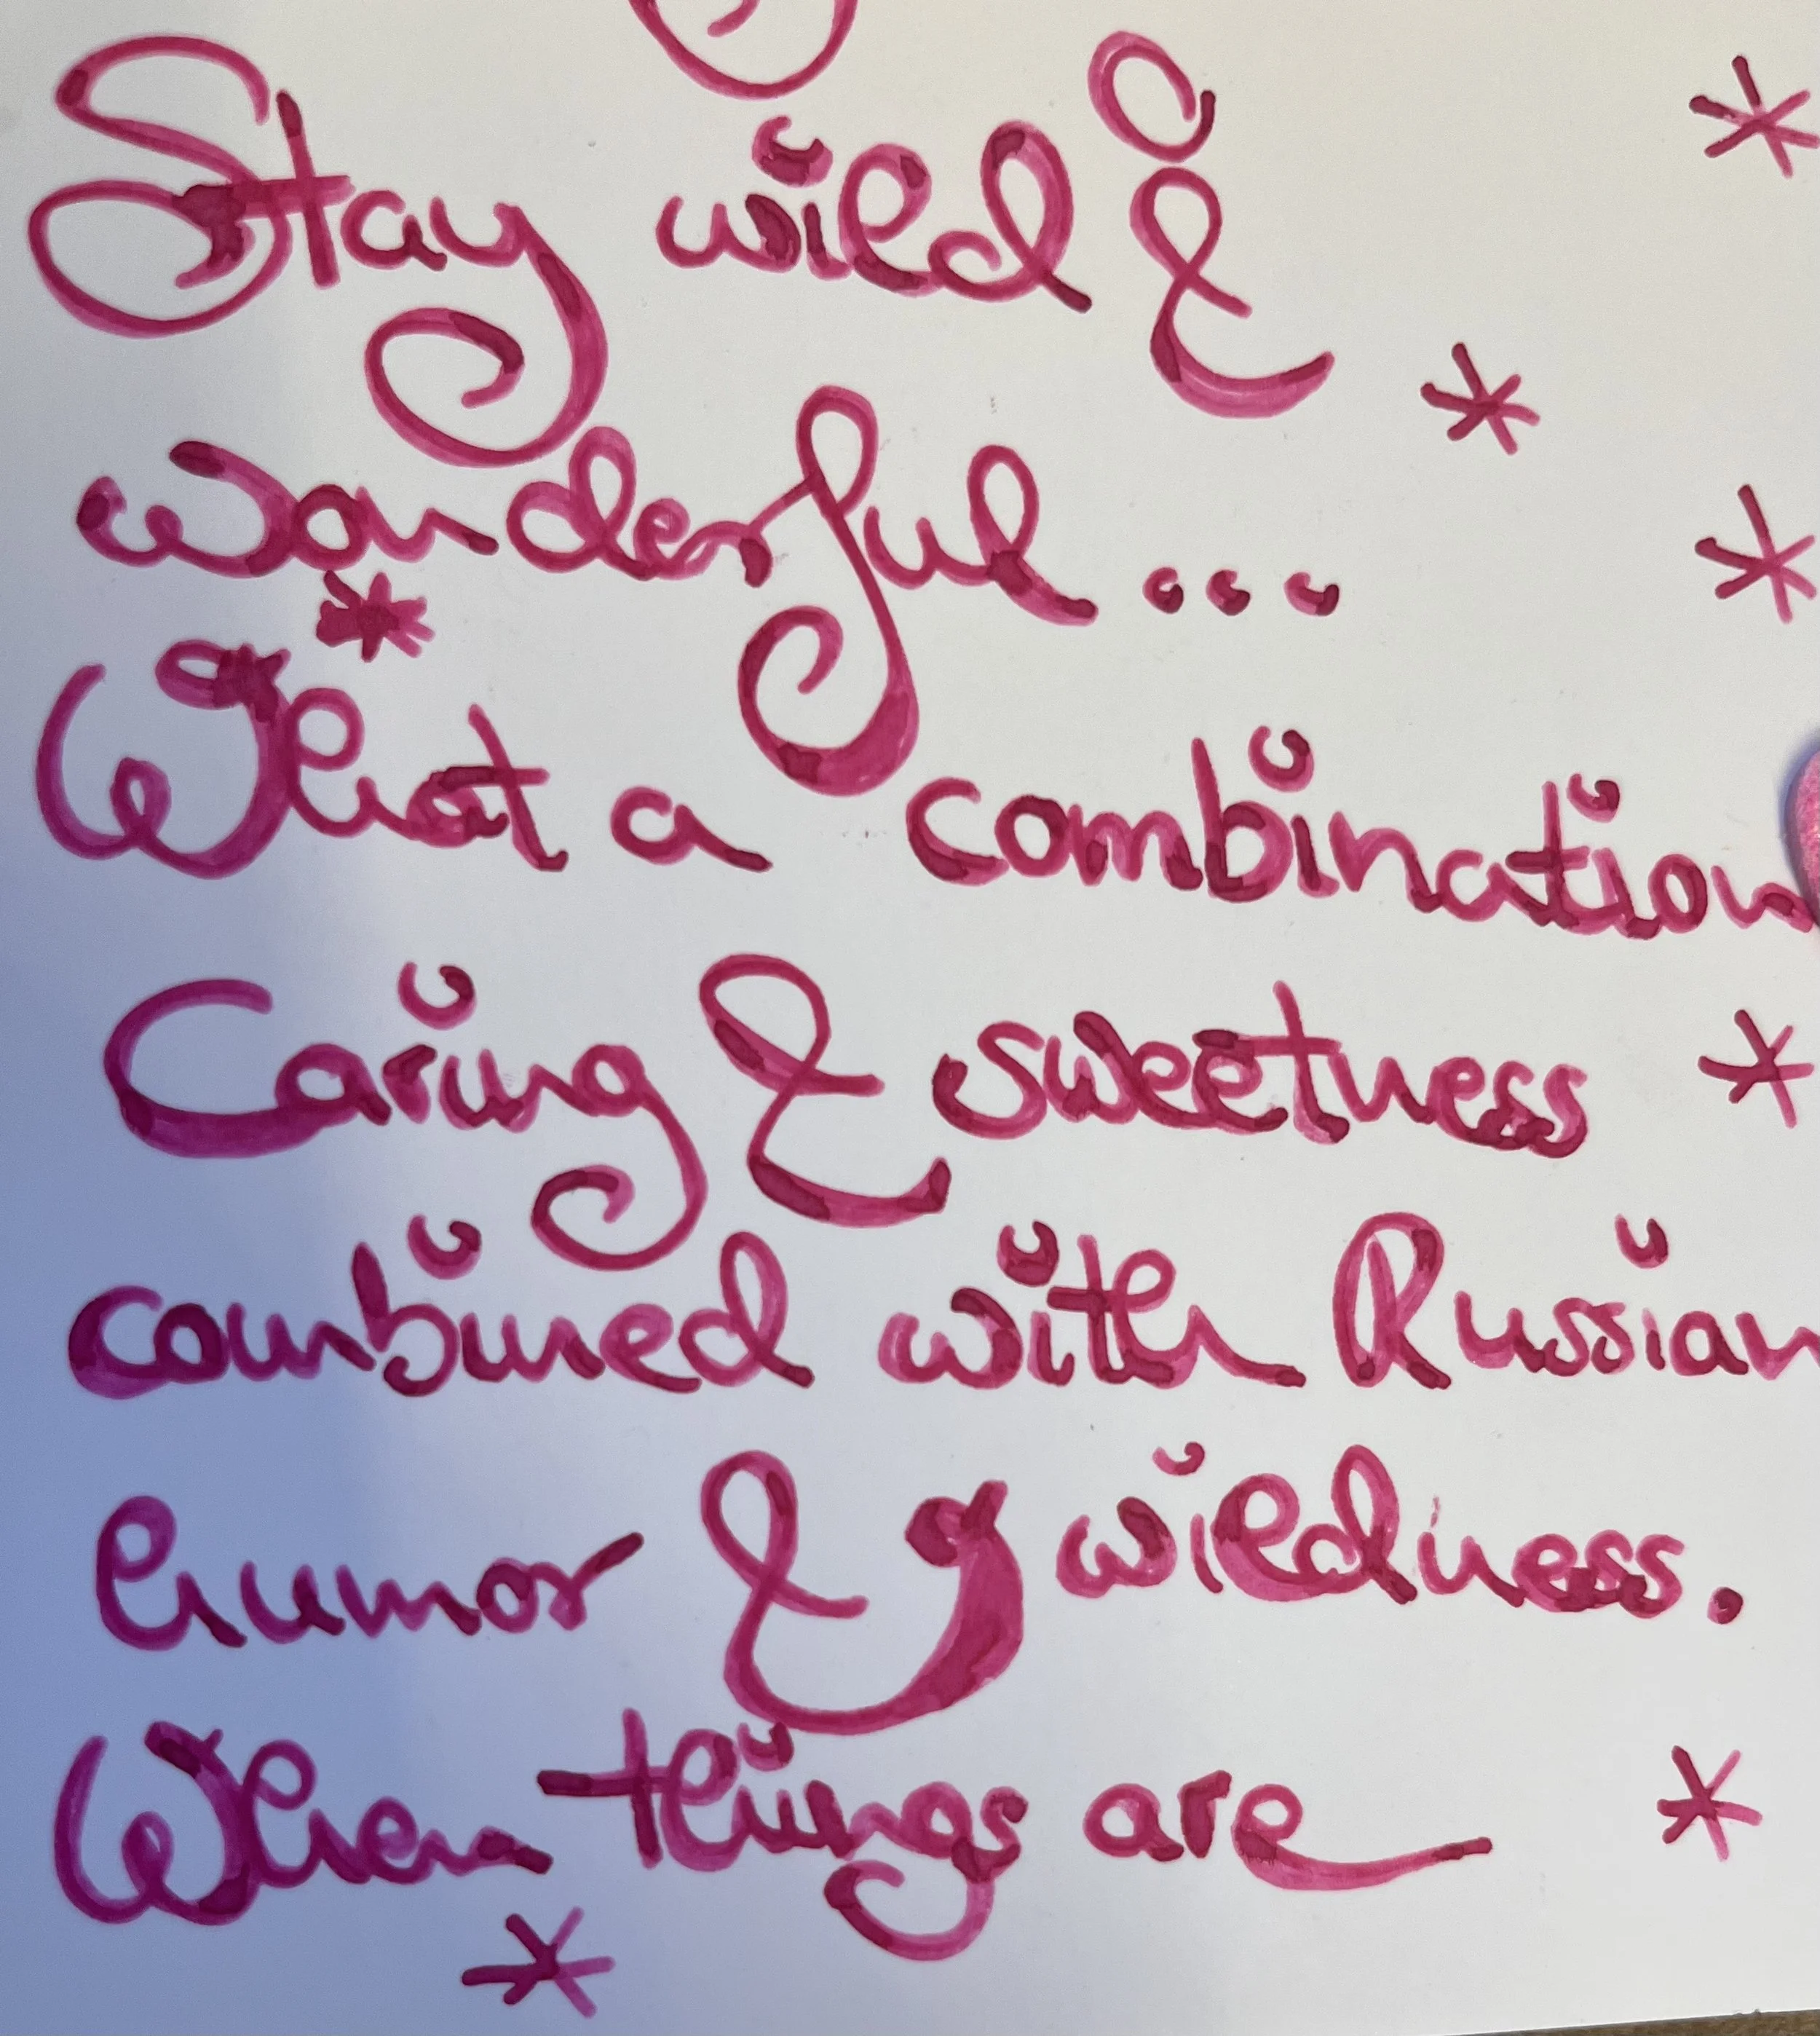 Stay wild &
wonderful...
What a combination
Caring & sweetness
combined with Russian
humor & wildness.
When things are